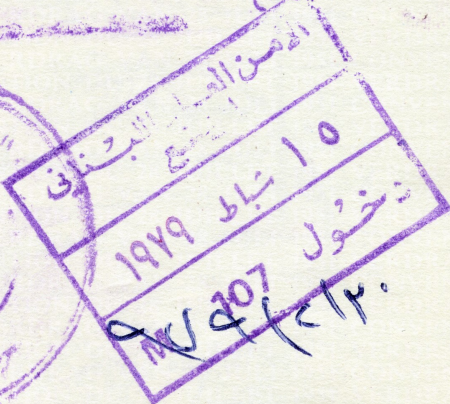 الامن العام اللبناني
المصنع
١٥ شباط ١٩٧٩
دخول
M 107